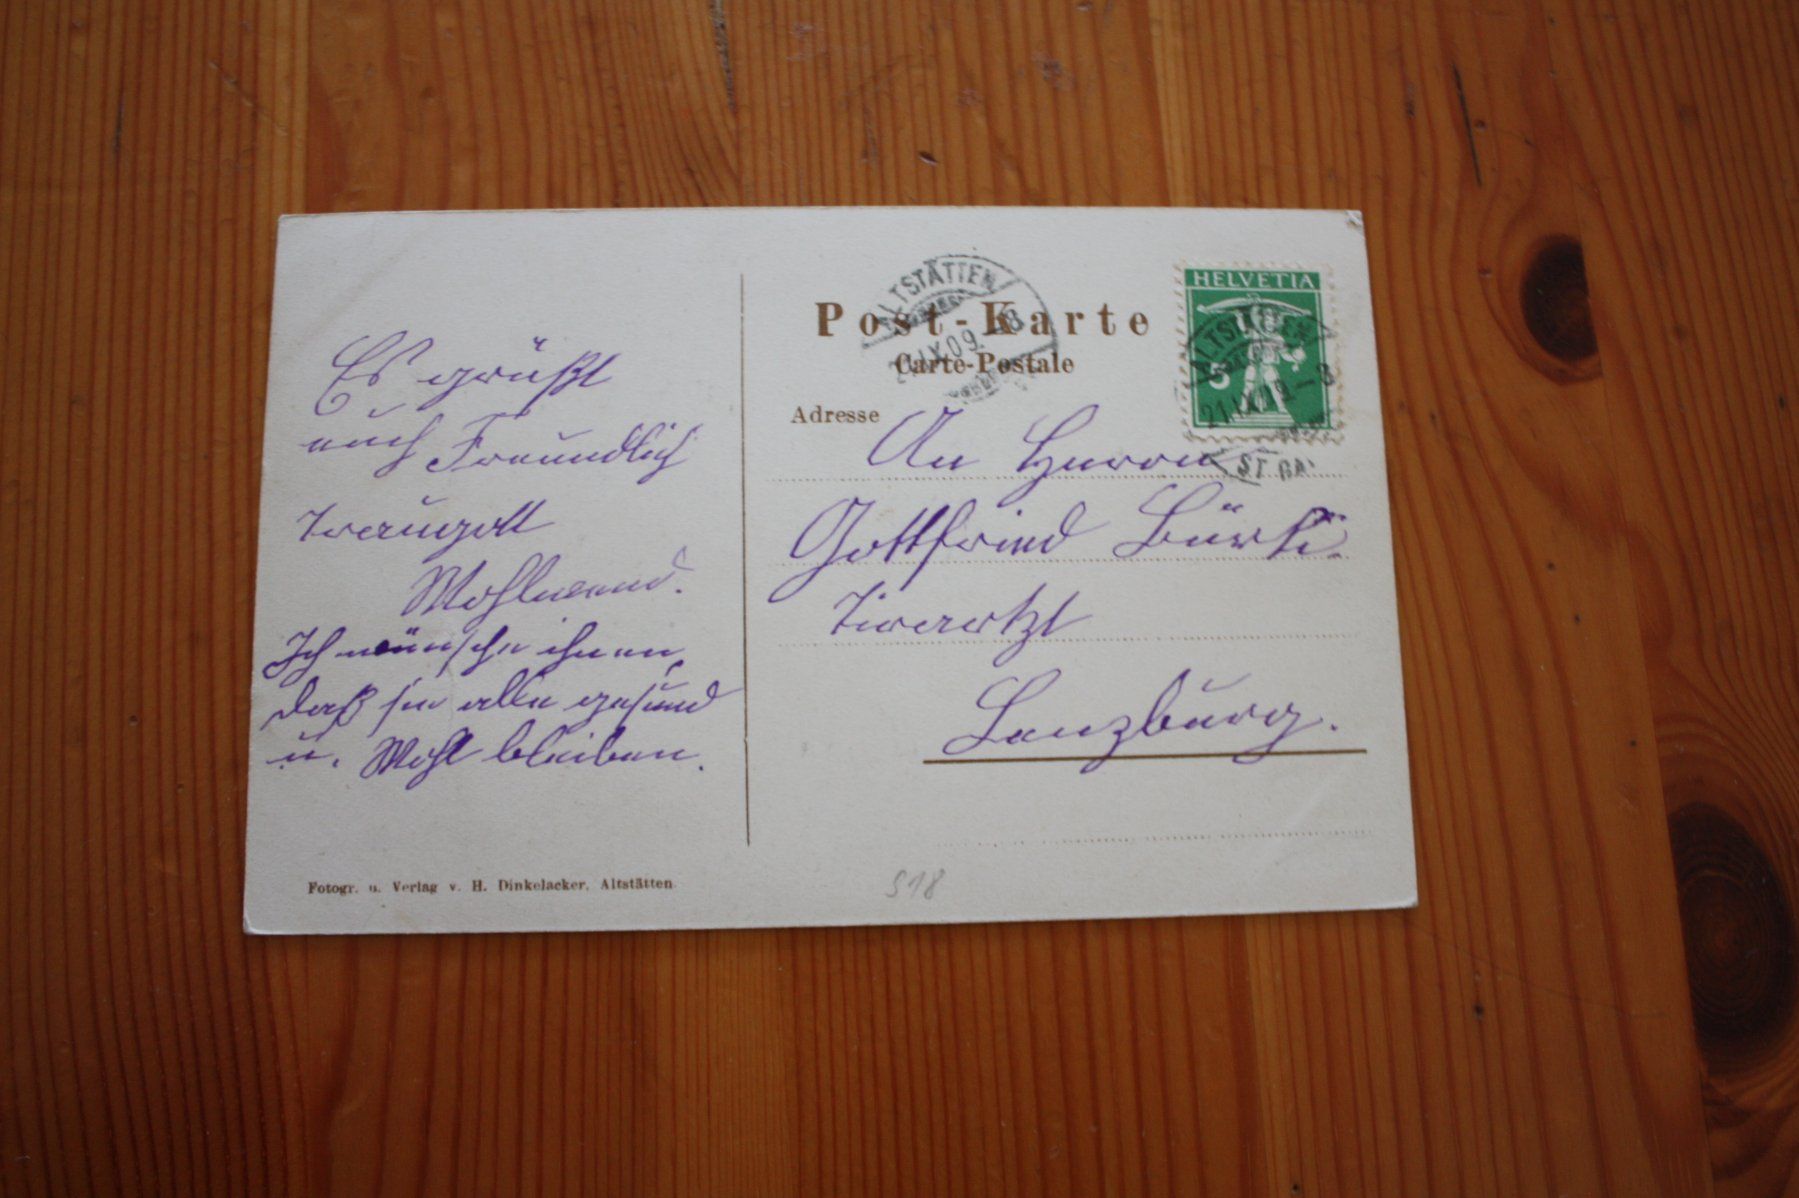 Es grüßt
euch Freundlich
Traugott
Wohlwend.
Ich wünsche ihnen,
daß sie alle gesund
u. Wohl bleiben.
Fotogr. u. Verlag v. H. Dinkelacker, Altstätten
ALTSTÄTTEN
IX 09
Post-Karte
Carte-Postale
HELVETIA
5
ALTSTÄTTEN
21.IX.09 - 8
ST. GA
Adresse
An Herrn
Gottfried Bürki.
Tirartzt
Lenzburg.
518